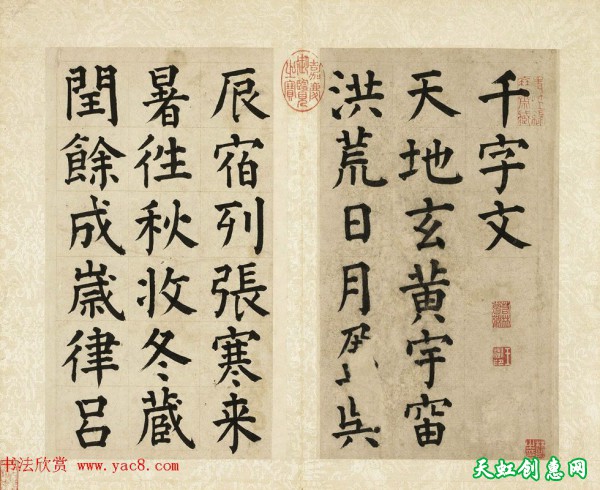 千字文
天地玄黄宇宙
洪荒日月
嘉慶御覽之寶
辰宿列張寒来
暑徃秋收冬蔵
閏餘成歳律呂
书法欣赏 www.yac8.com
天虹创惠网